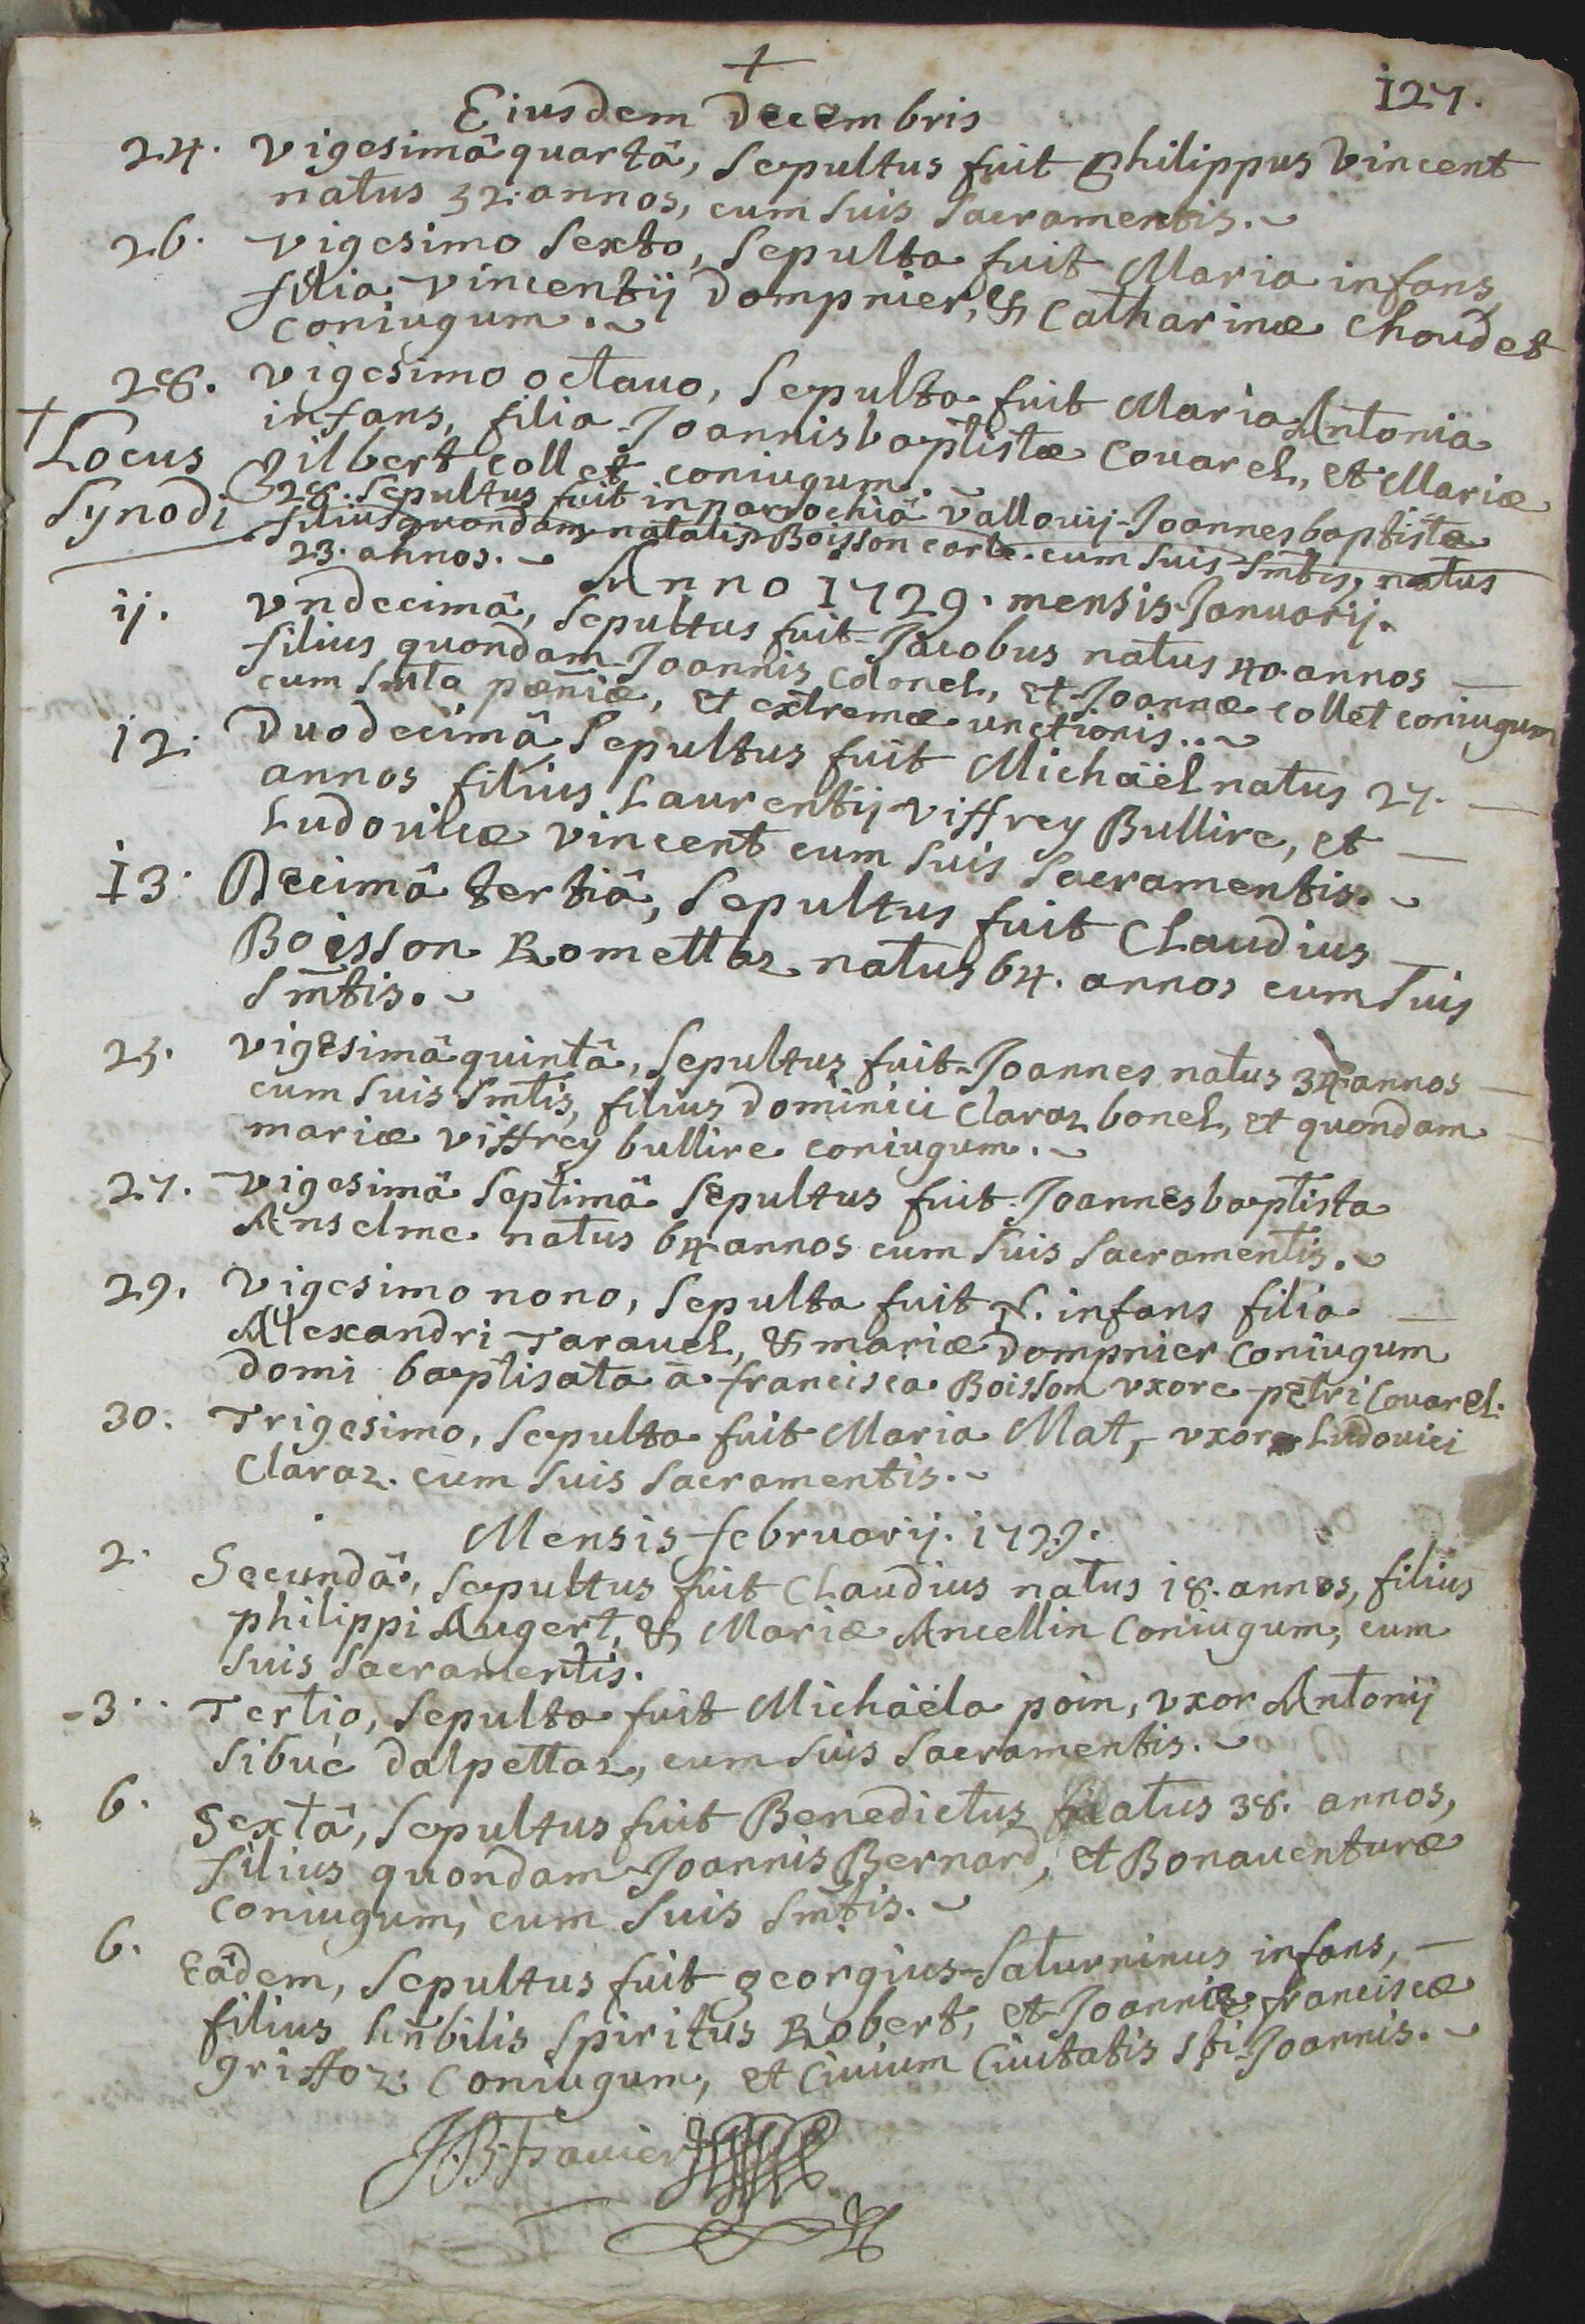 +
127.
Eiusdem Decembris
24. vigesimâ quartâ, sepultus fuit philippus vincent
natus 32. annos, cum suis sacramentis.
26. vigesimo sexto, sepulta fuit Maria infans,
filia vincentij Dompnier, & Catharinæ Choudet
coniugum.
28. vigesimo octauo, sepulta fuit Maria Antonia
infans, filia Joannisbaptistæ Couarel, et Mariæ
gilbert collet coniugum.
+
Locus
Synodi
28. sepultus fuit in parochiâ vallouij Joannesbaptista
filius quondam natalis Boisson carle cum suis smtis, natus
23. annos.
Anno 1729. mensis Januarij.
ij. vndecimâ, sepultus fuit Jacobus natus 40 annos
filius quondam Joannis Colonel, et Joannæ collet coniugum
cum smto pœniæ, et extremæ unctionis.
12. Duodecimâ sepultus fuit Michaël natus 27.
annos filius Laurentij viffrey Bullire, et
Ludouicæ vincent cum suis sacramentis.
13. Decimâ tertiâ, sepultus fuit Claudius
Boisson Romettaz natus 64. annos cum suis
smtis.
25. vigesimâ quintâ, sepultus fuit Joannes natus 34 annos
cum suis smtis, filius Dominici Claraz bonel, et quondam
mariæ viffrey bullire coniugum.
27. vigesimâ septimâ sepultus fuit Joannesbaptista
Anselme natus 64 annos cum suis sacramentis.
29. vigesimo nono, sepulta fuit N. infans filia
Alexandri Tarauel, & mariæ Dompnier coniugum
domi baptisata à francisca Boisson vxore petri Couarel.
30. Trigesimo, sepulta fuit Maria Mat, vxor Ludouici
Claraz cum suis sacramentis.
Mensis februarij. 1729.
2. Secundâ, sepultus fuit Claudius natus 18. annos, filius
philippi Augert, & Mariæ Ancellin coniugum, cum
suis sacramentis.
3. Tertio, sepulta fuit Michaëla poin, vxor Antonij
sibué dalpettaz, cum suis sacramentis.
6. Sextâ, sepultus fuit Benedictus natus 38. annos,
filius quondam Joannis Bernard, et Bonauenturæ
coniugum, cum suis smtis.
6. Eâdem, sepultus fuit georgius-Saturninus infans,
filius hnbilis spiritus Robert, et Joannæ franciscæ
griffoz coniugum, et Ciuium Ciuitatis sti Joannis.